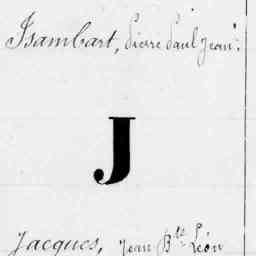 Isambart, Pierre Paul Jean.
J
Jacques, Jean Bte Léon